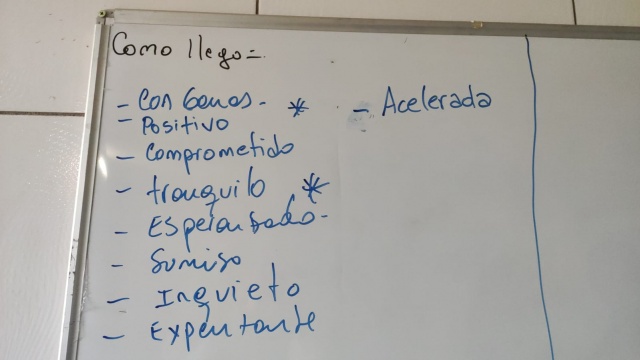 Como llego =
- Con Ganas - *
- Positivo
- Comprometido
- tranquilo *
- Esperanzado -
- Sumiso
- Inquieto
- Expentante
- Acelerada